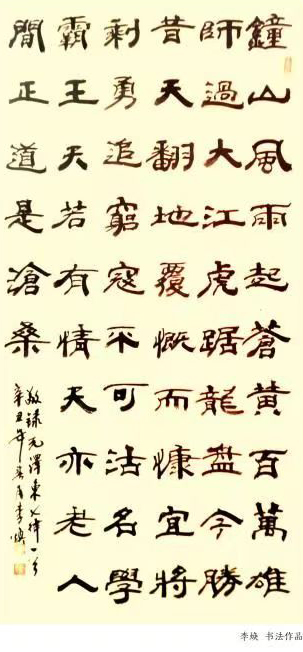 鐘山風雨起蒼黃百萬雄
師過大江虎踞龍盘今勝
昔天翻地覆慨而慷宜將
剩勇追窮寇不可沽名學
霸王天若有情天亦老人
間正道是滄桑
敬録毛澤東七律一首
辛丑年月李焕
李焕 书法作品